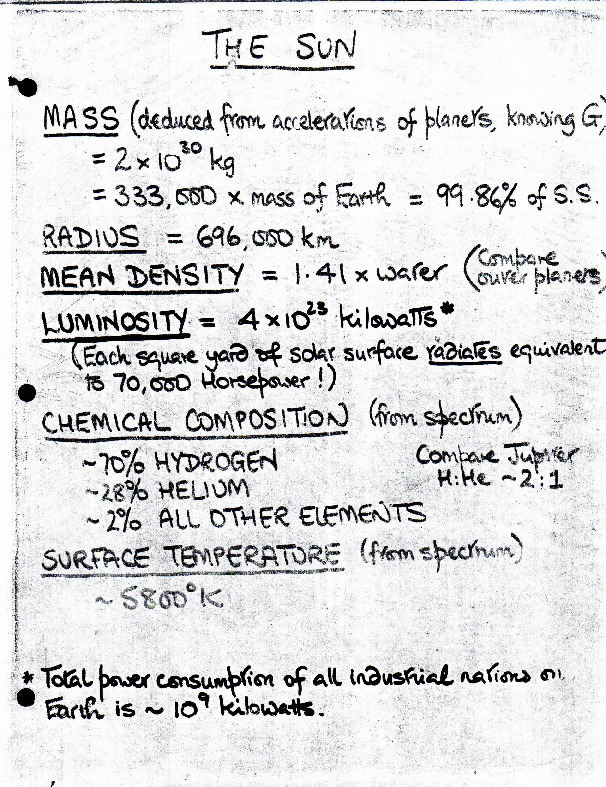 THE SUN
MASS (deduced from accelerations of planets, knowing G)
= 2 x 10³⁰ kg
= 333,000 x mass of Earth = 99.86% of S.S.
RADIUS = 696,000 km
MEAN DENSITY = 1.41 x water (Compare outer planets)
LUMINOSITY = 4 x 10²³ kilowatts*
(Each square yard of solar surface radiates equivalent
to 70,000 Horsepower!)
CHEMICAL COMPOSITION (from spectrum)
~70% HYDROGEN Compare Jupiter
~28% HELIUM H:He ~2:1
~2% ALL OTHER ELEMENTS
SURFACE TEMPERATURE (from spectrum)
~ 5800°K
* Total power consumption of all industrial nations on
Earth is ~ 10⁹ kilowatts.